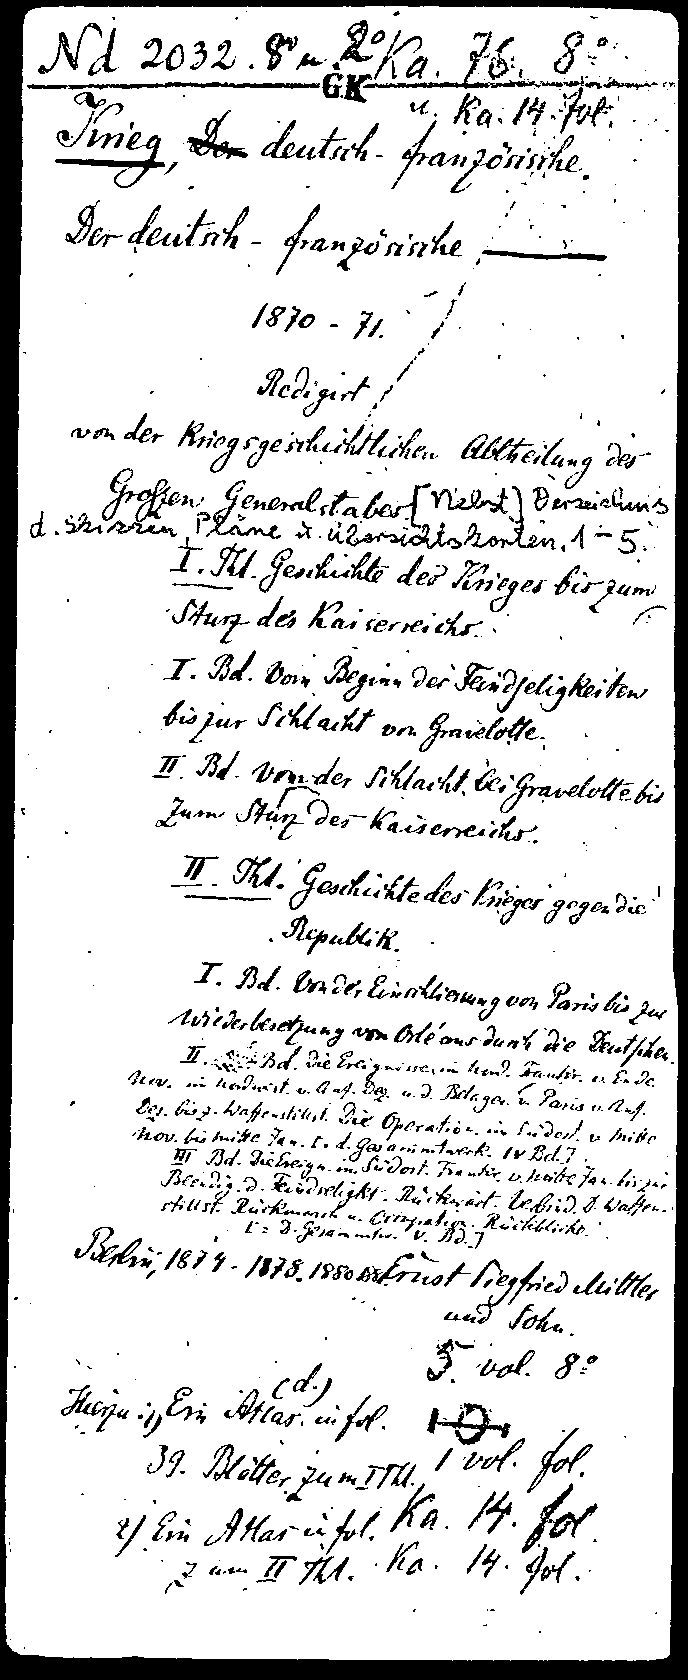 Nd 2032. 8° u. 2° Ka. 76. 8°
GK
u. Ka. 14. fol.
Krieg, Der deutsch-französische.
Der deutsch-französische ———
1870-71.
Redigirt
von der Kriegsgeschichtlichen Abtheilung des
Großen Generalstabes [Nebst] Verzeichnis
d. Skizzen, Pläne u. Übersichtskarten. 1-5.
I. Thl. Geschichte des Krieges bis zum
Sturz des Kaiserreichs.
I. Bd. Vom Beginn der Feindseligkeiten
bis zur Schlacht von Gravelotte.
II. Bd. Von der Schlacht bei Gravelotte bis
zum Sturz des Kaiserreichs.
II. Thl. Geschichte des Krieges gegen die
Republik.
I. Bd. Von der Einschliessung von Paris bis zur
Wiederbesetzung von Orléans durch die Deutschen.
II. Bd. Die Ereignisse im Nord. Frankr. v. Ende
Nov. im Nordwest. v. Anf. Dez. u. d. Belager. v. Paris v. Anf.
Dez. bis z. Waffenstillst. Die Operation. im Südost. v. Mitte
Nov. bis Mitte Jan. [= d. Gesammtwerk. IV Bd.]
III Bd. Die Ereign. im Südost. Frankr. v. Mitte Jan. bis zur
Beendig. d. Feindseligkt. Rückwärt. Verbind. D. Waffen-
stillst. Rückmarsch u. Occupation. Rückblicke.
[= D. Gesammtw. V. Bd.]
Berlin, 1874-1878. 1880 Ernst Siegfried Mittler
und Sohn.
5. vol. 8°
Hierzu 1) Ein Atlas (d.) in fol.
39. Blätter zum I Thl. 1 vol. fol.
2) Ein Atlas in fol. Ka. 14. fol.
zum II Thl. Ka. 14. fol.